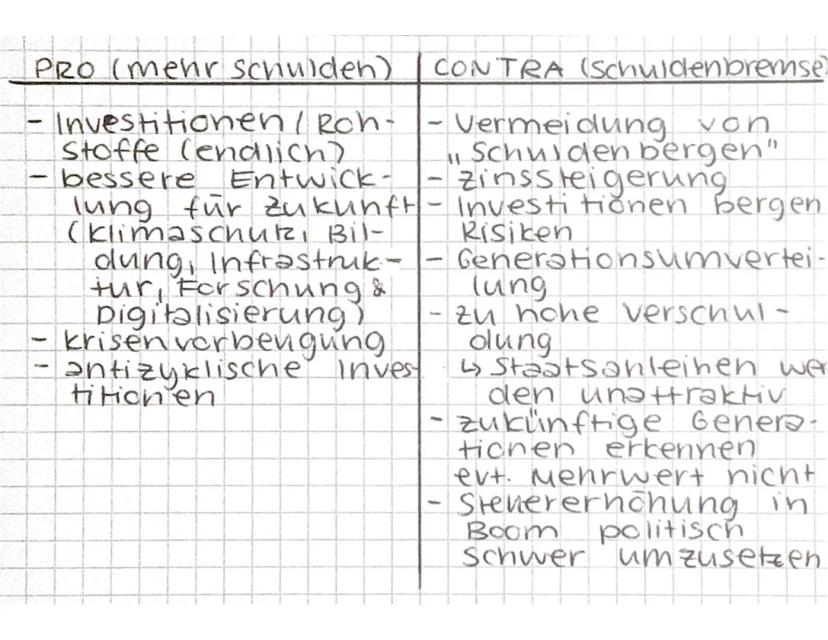 PRO (mehr Schulden)
- Investitionen / Roh-
stoffe (endlich)
- bessere Entwick-
lung für Zukunft
(Klimaschutz, Bil-
dung, Infrastruk-
tur, Forschung &
Digitalisierung)
- Krisenvorbeugung
- antizyklische Inves-
titionen
CONTRA (Schuldenbremse)
- Vermeidung von
„Schuldenbergen"
- Zinssteigerung
- Investitionen bergen
Risiken
- Generationsumvertei-
lung
- zu hohe Verschul-
dung
↳ Staatsanleihen wer
den unattraktiv
- zukünftige Genera-
tionen erkennen
evt. Mehrwert nicht
- Steuererhöhung in
Boom politisch
schwer umzusetzen